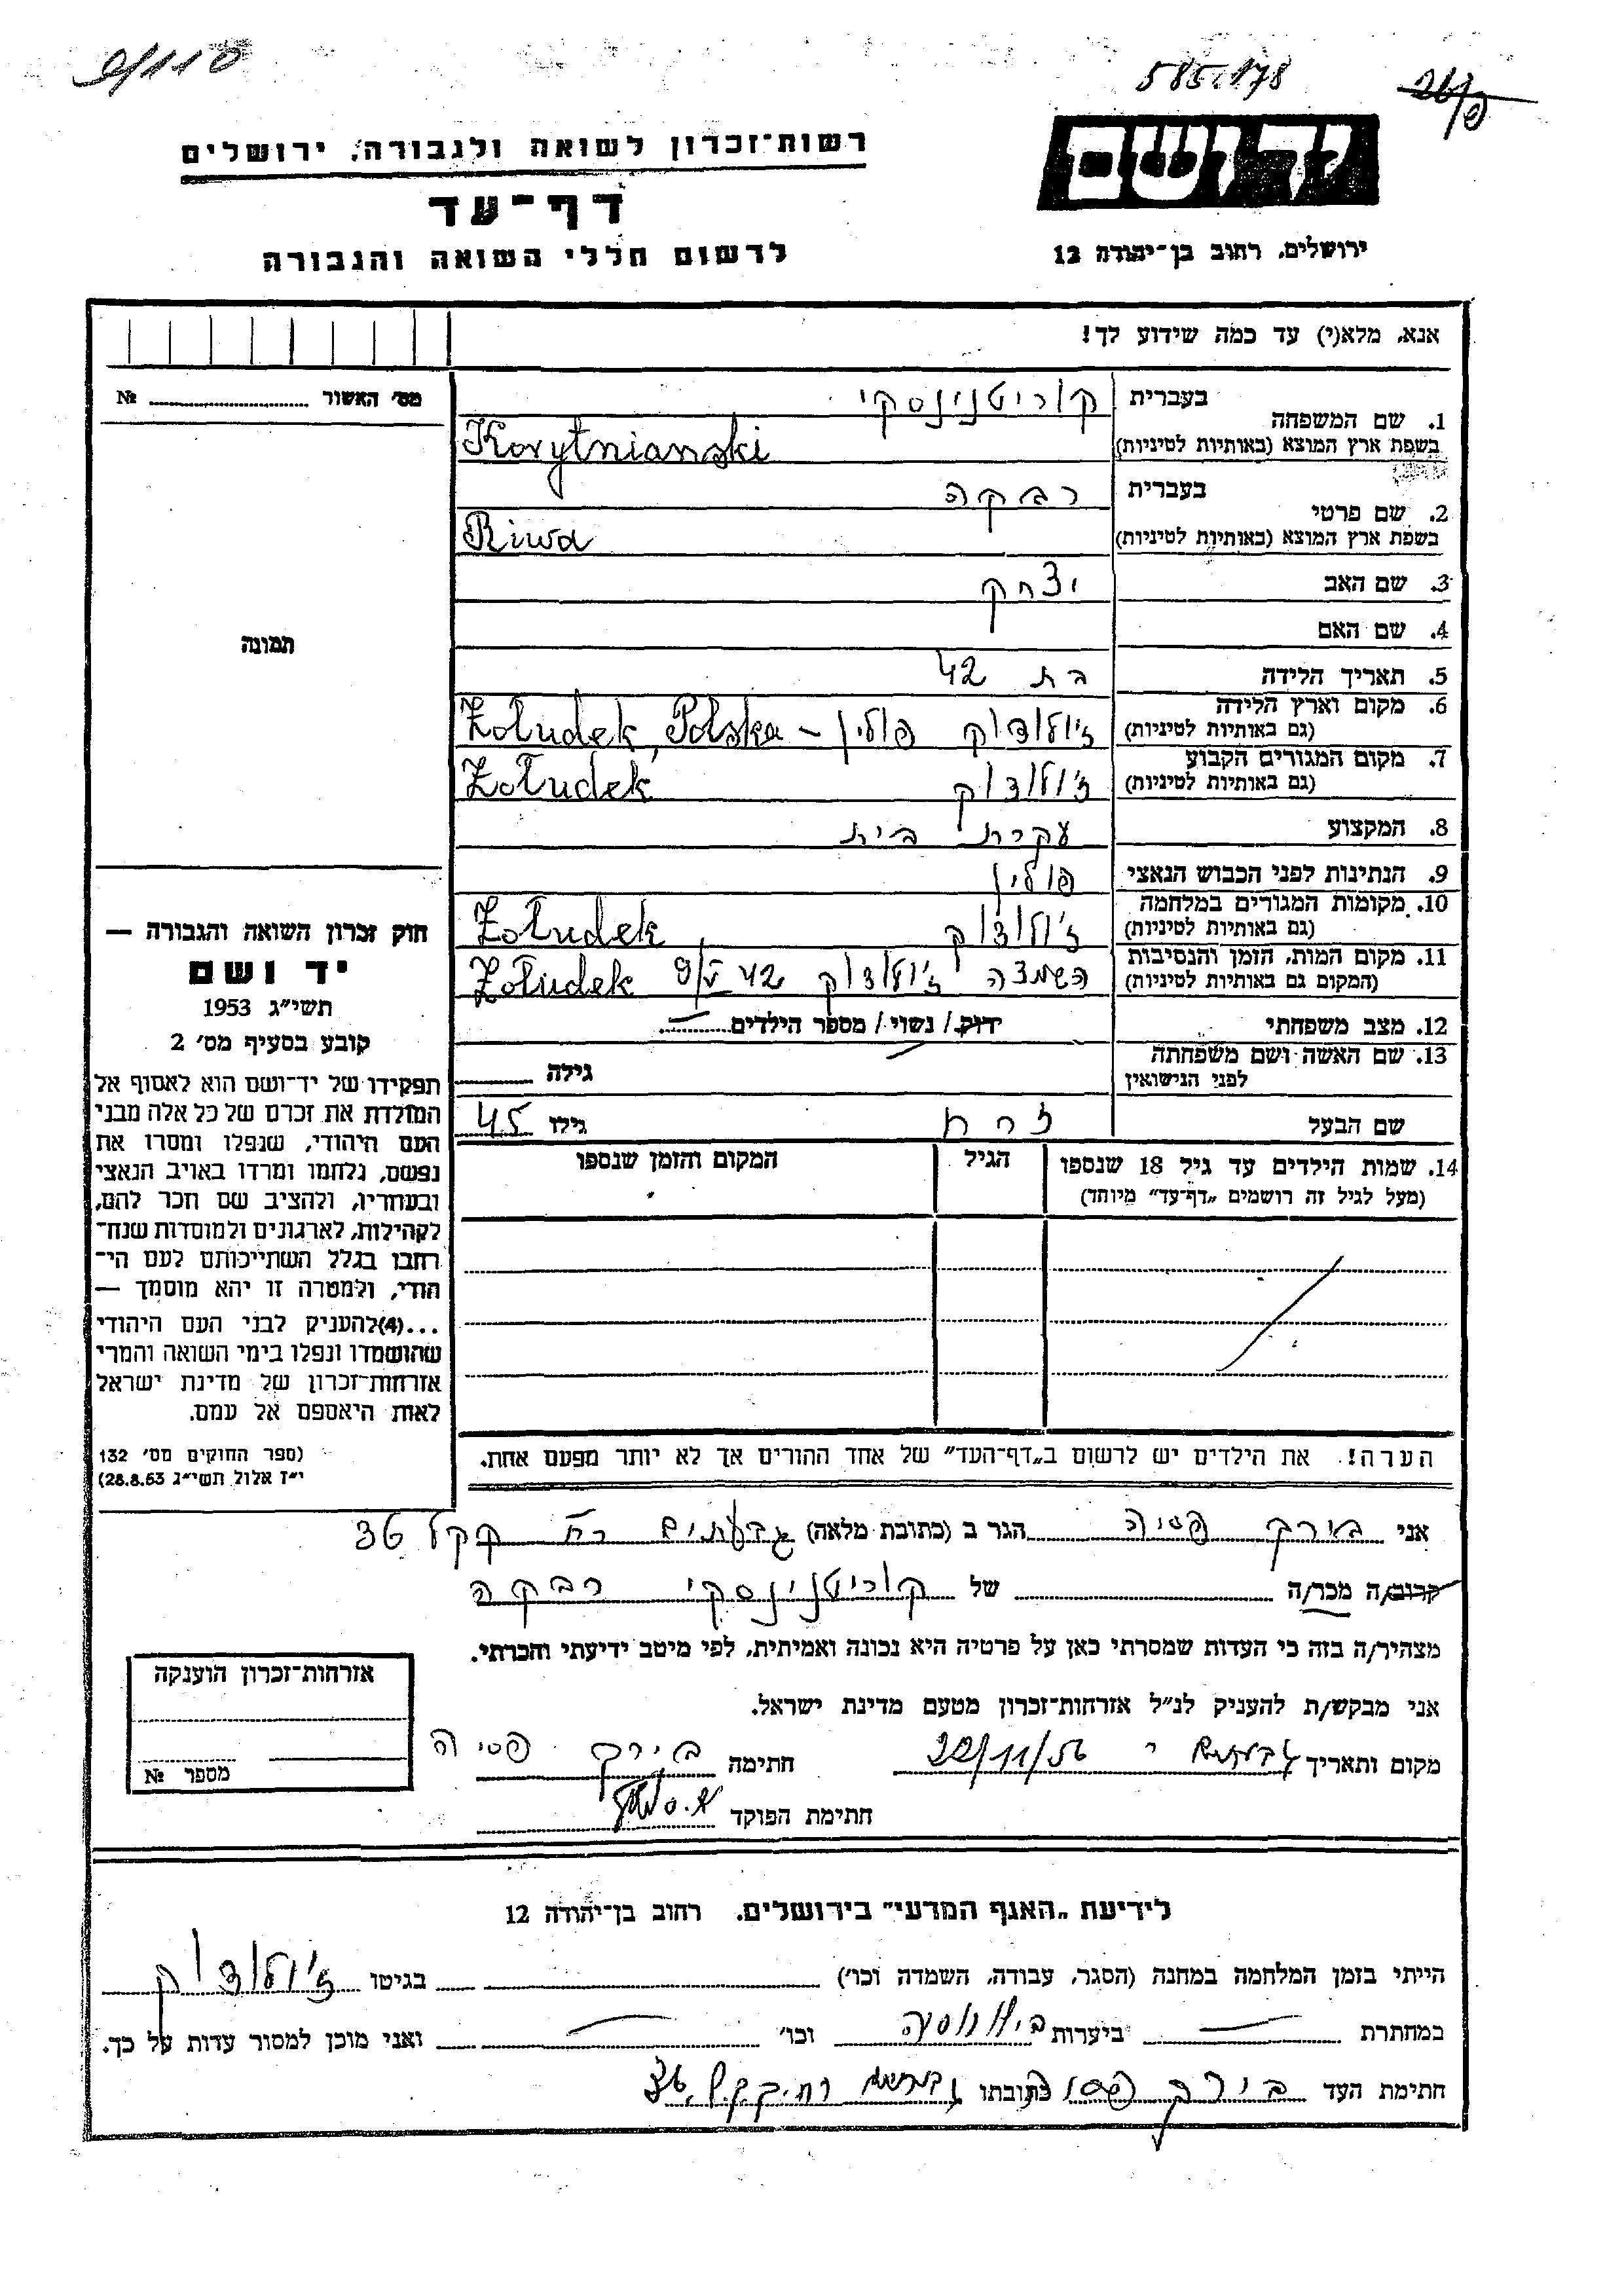 9/110
585178
רשות־זכרון לשואה ולגבורה, ירושלים
יד ושם
דף־עד
לרשום חללי השואה והגבורה
ירושלים, רחוב בן־יהודה 12
אנא, מלא(י) עד כמה שידוע לך!
מס׳ האשור № 
1. שם המשפחה
בעברית קוריטנינסקי
בשפת ארץ המוצא (באותיות לטיניות) Korytnianski
2. שם פרטי
בעברית רבקה
בשפת ארץ המוצא (באותיות לטיניות) Riwa
3. שם האב יצחק
4. שם האם
5. תאריך הלידה בת 42
6. מקום וארץ הלידה (גם באותיות לטיניות) ז'ולודוק פולין – Żołudek, Polska
7. מקום המגורים הקבוע (גם באותיות לטיניות) ז'ולודוק Żołudek
8. המקצוע עקרת בית
9. הנתינות לפני הכבוש הנאצי פולין
10. מקומות המגורים במלחמה (גם באותיות לטיניות) ז'ולודוק Żołudek
11. מקום המות, הזמן והנסיבות (המקום גם באותיות לטיניות) השמדה ז'ולודוק 9/V 42 Żołudek
12. מצב משפחתי רווק / נשוי / מספר הילדים —
13. שם האשה ושם משפחתה לפני הנישואין גילה
שם הבעל זרח גילו 45
14. שמות הילדים עד גיל 18 שנספו (מעל לגיל זה רושמים „דף־עד” מיוחד) הגיל המקום והזמן שנספו
תמונה
חוק זכרון השואה והגבורה —
יד ושם
תשי״ג 1953
קובע בסעיף מס׳ 2
תפקידו של יד־ושם הוא לאסוף אל
המולדת את זכרם של כל אלה מבני
העם היהודי, שנפלו ומסרו את
נפשם, נלחמו ומרדו באויב הנאצי
ובעוזריו, ולהציב שם וזכר להם,
לקהילות, לארגונים ולמוסדות שנח־
רבו בגלל השתייכותם לעם הי־
הודי, ולמטרה זו יהא מוסמך —
...(4)להעניק לבני העם היהודי
שהושמדו ונפלו בימי השואה והמרי
אזרחות־זכרון של מדינת ישראל
לאות היאספם אל עמם.
(ספר החוקים מס׳ 132
י״ז אלול תשי״ג 28.8.53)
הערה! את הילדים יש לרשום ב„דף־העד” של אחד ההורים אך לא יותר מפעם אחת.
אני בירק פסיה הגר ב (כתובת מלאה) גבעתיים רח קקל 36
קרוב/ה מכר/ה של קוריטנינסקי רבקה
מצהיר/ה בזה כי העדות שמסרתי כאן על פרטיה היא נכונה ואמיתית, לפי מיטב ידיעתי והכרתי.
אני מבקש/ת להעניק לנ״ל אזרחות־זכרון מטעם מדינת ישראל.
מקום ותאריך גבעתיים 22/11/56 חתימה בירק פסיה
חתימת הפוקד
אזרחות־זכרון הוענקה
מספר №
לידיעת „האגף המדעי” בירושלים. רחוב בן־יהודה 12
הייתי בזמן המלחמה במחנה (הסגר, עבודה, השמדה וכו׳) בגיטו ז'ולודוק
במחתרת — ביערות וכו׳ — ואני מוכן למסור עדות על כך.
חתימת העד בירק פסיה כתובתו גבעתיים רח. ק.ק.ל. 36